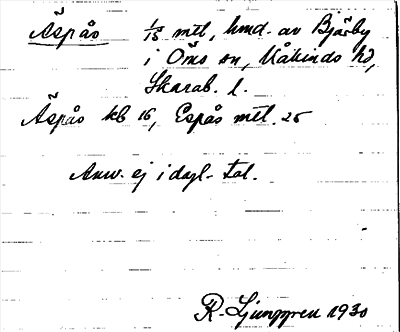 Äspås 1/8 mtl, hmd. av Bjärby
i Öms sn, Kåkinds hd,
Skarab. l.
Äspås kb 16, Espås mtl. 25
Anv. ej i dagl. tal.
R. Ljunggren 1930